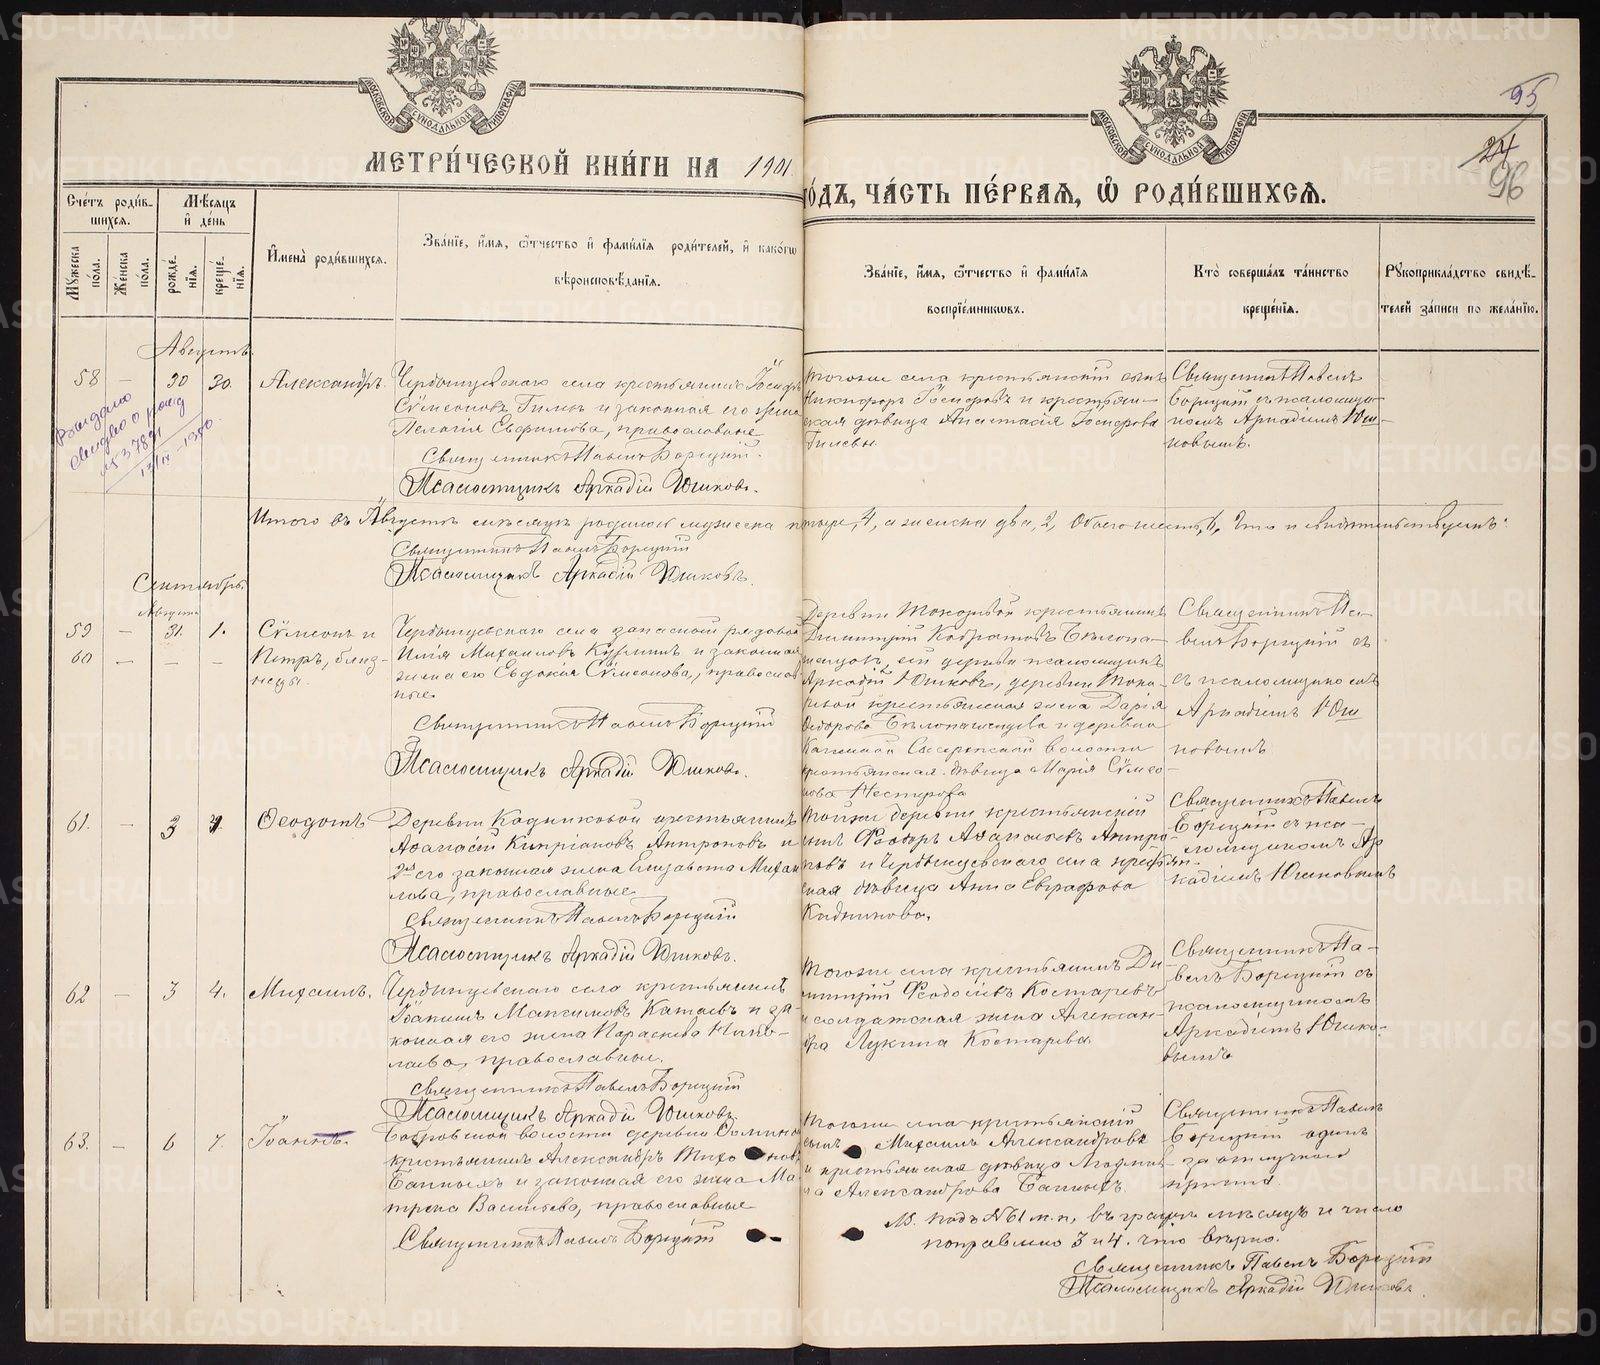 МЕТРИ́ЧЕСКОЙ КНИ́ГИ НА 1901
ГО́ДЪ, ЧА́СТЬ ПЕ́РВАЯ, Ѡ РОДИ́ВШИХСЯ.
95
24
96
МОСКОВСКОЙ СѴНОДАЛЬНОЙ ТИПОГРАФІИ
МОСКОВСКОЙ СѴНОДАЛЬНОЙ ТИПОГРАФІИ
Сче́тъ роди́в-
шихся.
Мѣ́сяцъ
и҆ де́нь
Му́жеска
по́ла.
Же́нска
по́ла.
рожде́-
нїя.
креще́-
нїя.
И҆мена̀ роди́вшихся.
Зва́нїе, и҆́мя, ѻ҆́тчество и҆ фами́лїя роди́телей, и҆ како́гѡ
вѣроисповѣ́данїя.
Зва́нїе, и҆́мя, ѻ҆́тчество и҆ фами́лїя
воспрїе́мникѡвъ.
Кто̀ соверша́лъ та́инство
креще́нїя.
Рꙋкоприкла́дство свидѣ́-
телей за́писи по жела́нїю.
Августъ.
58 — 30 30. Александръ.
Чердынцевскаго села крестьянинъ Іосифъ
Сѵмеоновъ Гилевъ и законная его жена
Пелагія Евфимова, православные
Священникъ Павелъ Борецкій.
Псаломщикъ Аркадій Юшковъ.
Тогоже села крестьянскій сынъ
Никифоръ Іосифовъ и крестьян-
ская дѣвица Анастасія Іосифова
Гилевы.
Священникъ Павелъ
Борецкій съ псаломщи-
комъ Аркадіемъ Юш-
ковымъ.
Выдано
№ 3789
Итого въ Августѣ мѣсяцѣ родилось мужеска четыре, 4, а женска два, 2, обоего шесть, 6, что и свидѣтельствуемъ:
Священникъ Павелъ Борецкій
Псаломщикъ Аркадій Юшковъ.
Сентябрь.
Августа
59 — 31. 1. Сѵмеонъ и
60 — — — Петръ, близ-
нецы.
Чердынцевскаго села запасной рядовой
Илія Михаиловъ и законная
жена его Евдокія Сѵмеонова, православ-
ные
Священникъ Павелъ Борецкій
Псаломщикъ Аркадій Юшковъ.
Деревни крестьянинъ
Димитрій
псаломщикъ
Аркадій Юшковъ, деревни
крестьянская жена Дарія
Ѳеодорова и деревни
Сысертской волости
крестьянская дѣвица Марія Сѵмео-
нова Нестерова
Священникъ Па-
велъ Борецкій съ
съ псаломщикомъ
Аркадіемъ Юш
ковымъ
61. — 3 4. Ѳеодотъ
Деревни Кадниковой крестьянинъ
Аѳанасій Кипріановъ Антроповъ и
2я его законная жена Елизавета Михаи
лова, православные
Священникъ Павелъ Борецкій
Псаломщикъ Аркадій Юшковъ.
Тойже деревни крестьянскій
сынъ Ѳеодоръ Аѳанасьевъ Антро-
повъ и Чердынцевскаго села крестьян-
ская дѣвица Анна Евграфова
Кадникова.
Священникъ Павелъ
Борецкій съ пса-
ломщикомъ Ар
кадіемъ Юшковымъ
62 — 3 4. Михаилъ.
Чердынцевскаго села крестьянинъ
Іоакимъ Максимовъ Катаевъ и за
конная его жена Параскева Нико-
лаева, православные.
Священникъ Павелъ Борецкій
Псаломщикъ Аркадій Юшковъ.
Тогоже села крестьянинъ Ди
митрій Ѳеодосіевъ Костаревъ
и солдатская жена Алексан-
дра Лукина Костарева.
Священникъ Па-
велъ Борецкій съ
псаломщикомъ
Аркадіемъ Юшко-
вымъ
63. — 6 7. Іоаннъ.
Бобровской волости деревни
крестьянинъ Александръ
Банныхъ и законная его жена Ма-
трона Васильева, православные
Священникъ Павелъ Борецкій
Тогоже села крестьянскій
сынъ Михаилъ Александровъ
и крестьянская дѣвица
Александрова Банныхъ.
Священникъ Павелъ
Борецкій одинъ
за отлучкою
причта.
подъ № 61 м. п., въ графѣ мѣсяцъ и число
поправлено 3 и 4. что вѣрно.
Священникъ Павелъ Борецкій
Псаломщикъ Аркадій Юшковъ.
METRIKI.GASO-URAL.RU